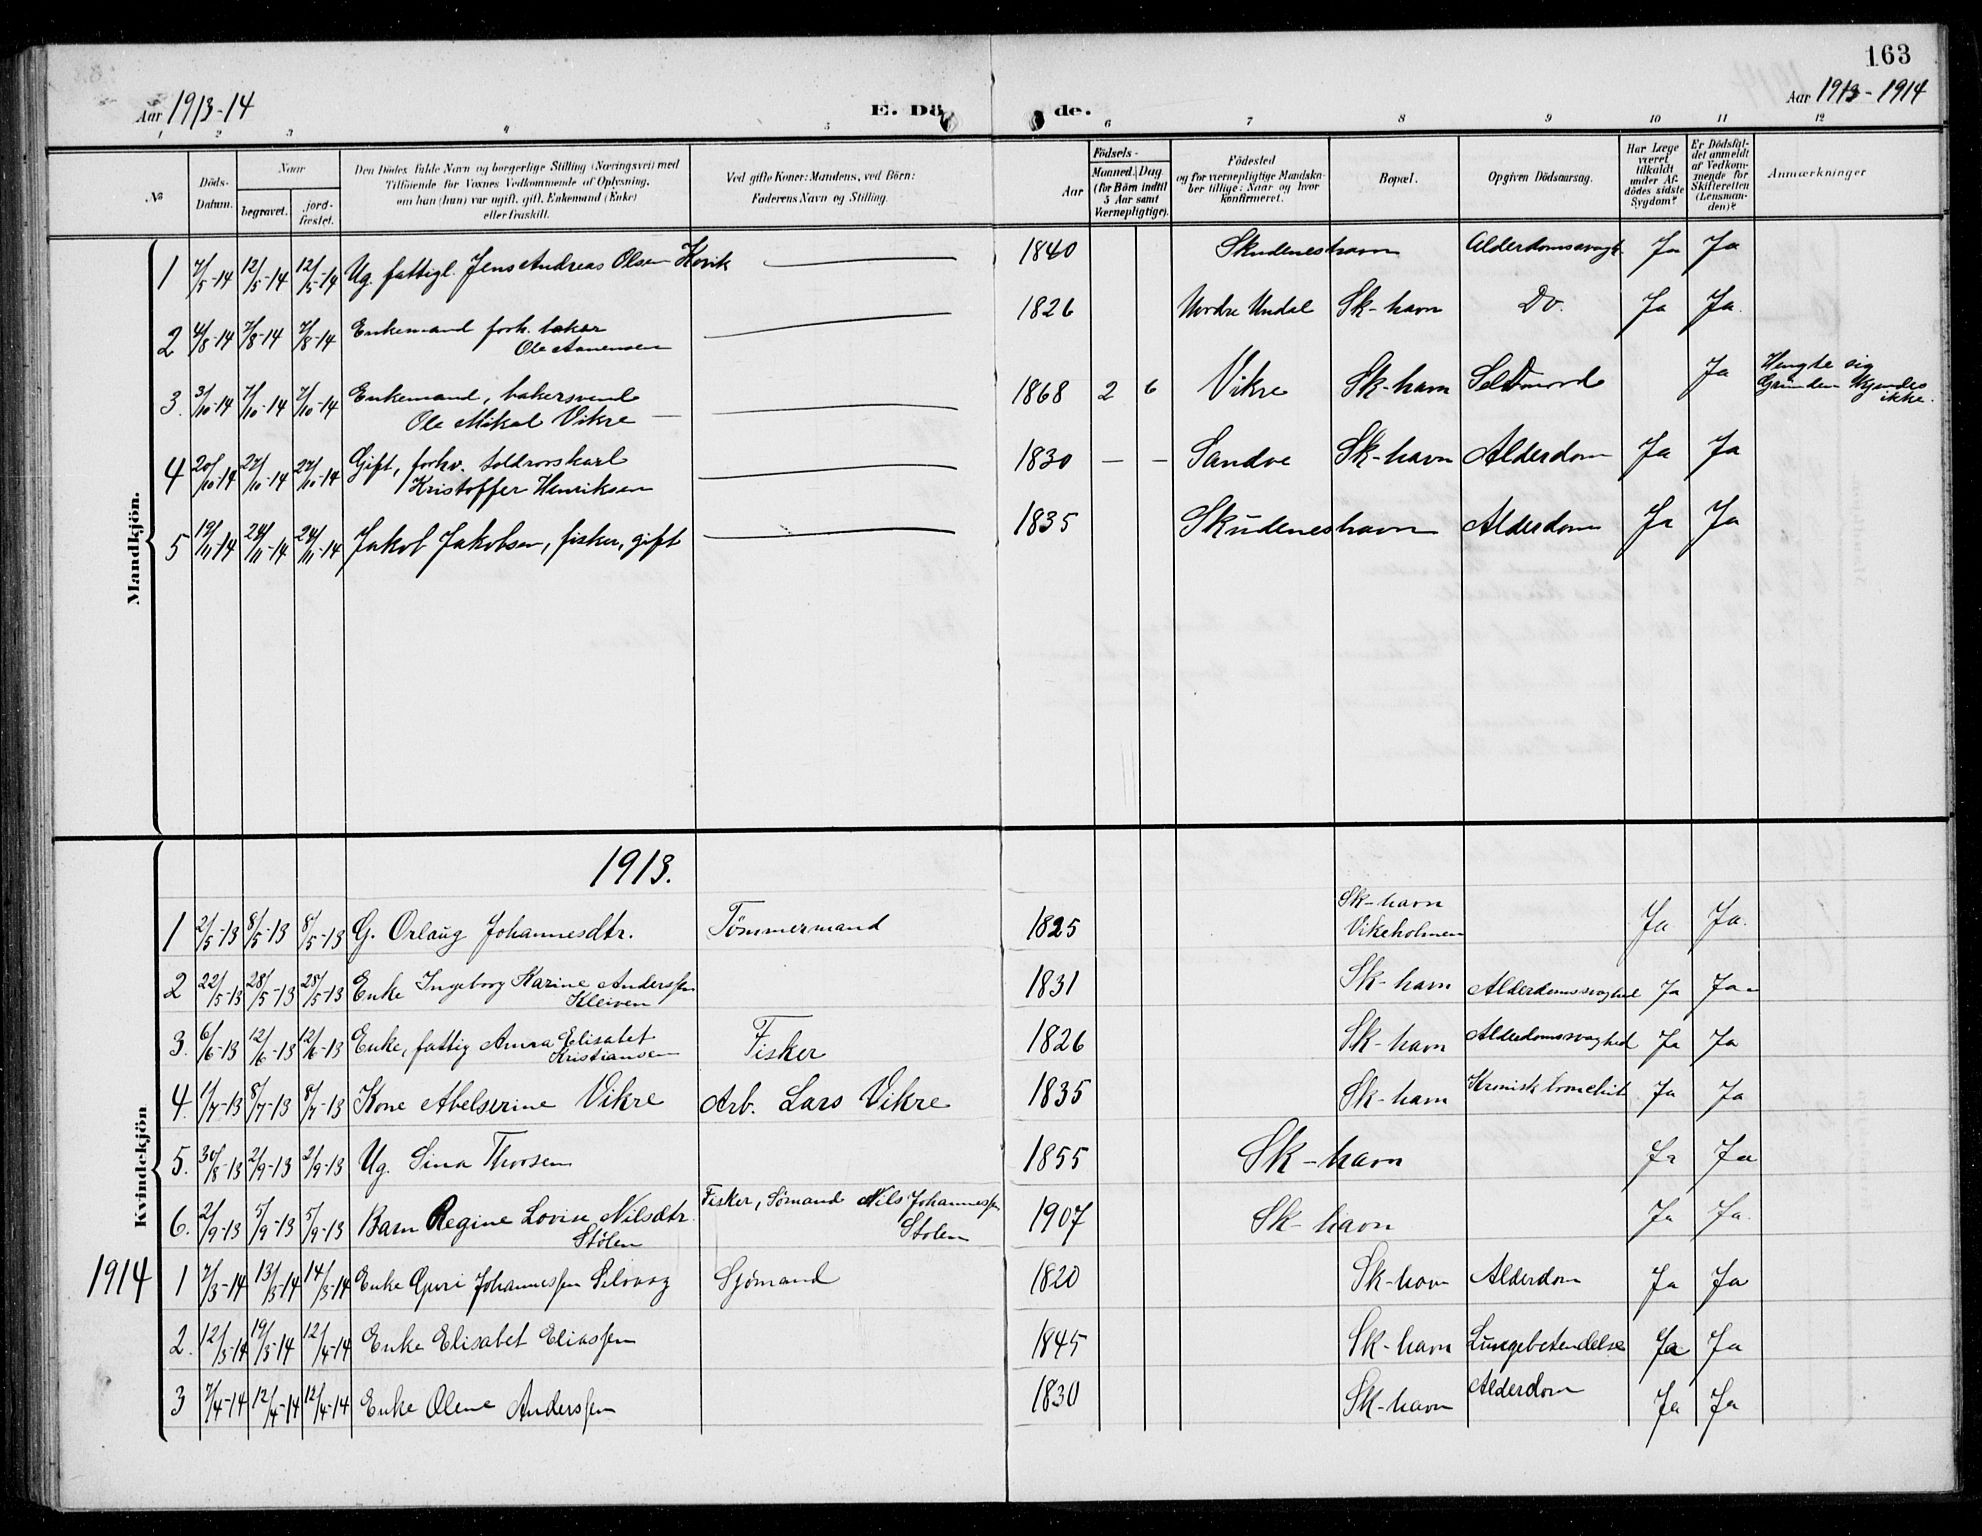 163
Aar 1913-14
E. Dö de.
Aar 1913-1914
1 2 3 4 5 6 7 8 9 10 11 12
№
Döds-Datum.
Naar
begravet.
jord-fæstet.
Den Dödes fulde Navn og borgerlige Stilling (Næringsvei) med
Tilföiende for Voxnes Vedkommende af Oplysning,
om han (hun) var ugift, gift, Enkemand (Enke)
eller fraskilt.
Ved gifte Koner: Mandens, ved Börn:
Faderens Navn og Stilling.
Aar
Födsels-
Maaned. Dag.
(for Börn indtil
5 Aar samt
Værnepligtige).
Födested
og for værnepligtige Mandska-
ber tillige: Naar og hvor
konfirmeret.
Bopæl.
Opgiven Dödsaarsag.
Har Læge
været
tilkaldt
under Af-
dödes sidste
Sygdom?
Er Dödsfal-
det anmeldt
af Vedkom-
mende for
Skifteretten
(Lensman-
den)?
Anmærkninger
Mandkjön.
1 7/5-14 12/5-14 12/5-14 Ug. fattigl. Jens Andreas Olsen Kovik — 1840 Skudeneshavn Alderdomssvagh. Ja Ja
2 4/8-14 7/8-14 7/8-14 Enkemand forh. baker — 1826 Nordre Undal Sk-havn Do. Ja Ja.
Ole Aanensen
3. 3/10-14 7/10-14 7/10-14 Enkemand, bakersvend — 1868 2 6 Vikre Sk-havn Selvmord Ja Hengte sig
Ole Mikal Vikre — Grunden kjendes
ikke.
4 20/10-14 27/10-14 27/10-14 Gift, forhv. toldrorskarl — 1830 — — Sandve Sk-havn Alderdom Ja Ja
Kristoffer Henriksen
5 19/11-14 24/11-14 24/11-14 Jakob Jakobsen, fisker, gift — 1835 Skudeneshavn Alderdom Ja Ja
Kvindekjön
1913.
1 2/5-13 8/5-13 8/5-13 G. Orlaug Johannesdtr. Tømmermand 1825 Sk-havn
Vikeholmen Ja Ja.
2 22/5-13 28/5-13 28/5-13 Enke Ingeborg Karine Anderssen 1831 Sk-havn Alderdomssvaghed Ja Ja
Kleiven
3. 6/6-13 12/6-13 12/6-13 Enke, fattig Anna Elisabet Fisker 1826 Sk-havn Alderdomssvaghed Ja Ja
Kristiansen
4. 1/7-13 8/7-13 8/7-13 Kone Abelserine Vikre Arb. Lars Vikre 1835 Sk-havn Kronisk bronchit Ja Ja
5. 30/8-13 2/9-13 2/9-13 Ug. Sina Thorsen 1855 Sk-havn Ja Ja
6. 2/9-13 5/9-13 5/9-13 Barn Regine Lovise Nilsdtr. Fisker, Sømand Nils Johannessen 1907 Sk-havn Ja Ja.
Stølen Stolen
1914 1 7/3-14 13/3-14 14/3-14 Enke Guri Johannessen Silovag Sjømand 1820 Sk-havn Alderdom Ja Ja
2. 12/3-14 19/3-14 12/4-14 Enke Elisabet Eliassen 1845 Sk-havn Lungebetendelse Ja Ja
3 7/4-14 12/4-14 12/4-14 Enke Olene Anderssen 1830 Sk-havn Alderdom Ja Ja